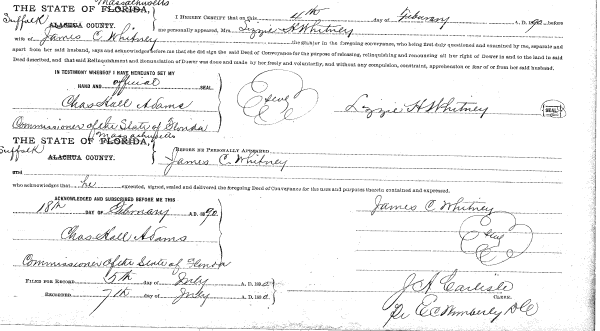 Massachusetts
THE STATE OF FLORIDA,
Suffolk
ALACHUA COUNTY.
I HEREBY CERTIFY that on this 4th day of February A. D. 1890 before
me personally appeared, Mrs. Lizzie H Whitney
wife of James C. Whitney the grantor in the foregoing conveyance, who being first duly questioned and examined by me, separate and
apart from her said husband, says and acknowledges before me that she did sign the said Deed of Conveyance for the purpose of releasing, relinquishing and renouncing all her right of Dower in and to the land in said
Deed described, and that said Relinquishment and Renunciation of Dower was done and made by her freely and voluntarily, and without any compulsion, constraint, apprehension or fear of or from her said husband.
IN TESTIMONY WHEREOF I HAVE HEREUNTO SET MY
HAND AND official SEAL.
Chas Hall Adams
Seal
Lizzie H Whitney
SEAL
Commissioner of the State of Florida
Massachusetts
THE STATE OF FLORIDA,
Suffolk
ALACHUA COUNTY.
BEFORE ME PERSONALLY APPEARED
James C. Whitney
and
who acknowledged that he executed, signed, sealed and delivered the foregoing Deed of Conveyance for the uses and purposes therein contained and expressed.
ACKNOWLEDGED AND SUBSCRIBED BEFORE ME THIS
18th DAY OF February A.D. 1890
James C Whitney
Chas Hall Adams
Seal
Commissioner of the State of Florida
FILED FOR RECORD 5th day of July A. D. 1890
J A Carlisle
CLERK.
RECORDED 7th day of July A. D. 1890
Pr E C Wimberly D C